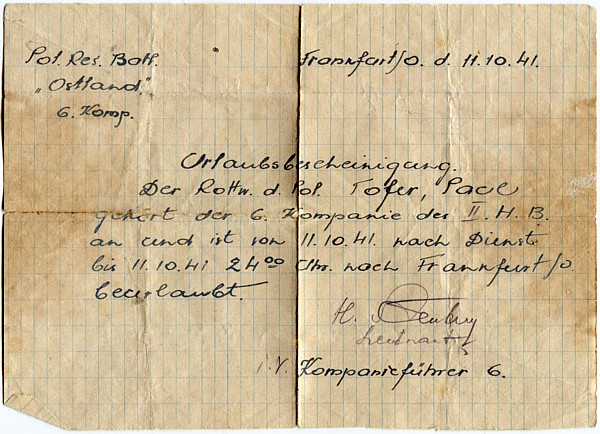 Pol. Res. Batl.
"Ostland."
6. Komp.
Frankfurt/O. d. 11.10.41.
Urlaubsbescheinigung.
Der Rottw. d. Pol. Tofer, Paul
gehört der 6. Kompanie des II. H.B.
an und ist von 11.10.41. nach Dienst
bis 11.10.41 24°° Uhr. nach Frankfurt/O.
beurlaubt.
H.
Leutnant
i.V. Kompanieführer 6.